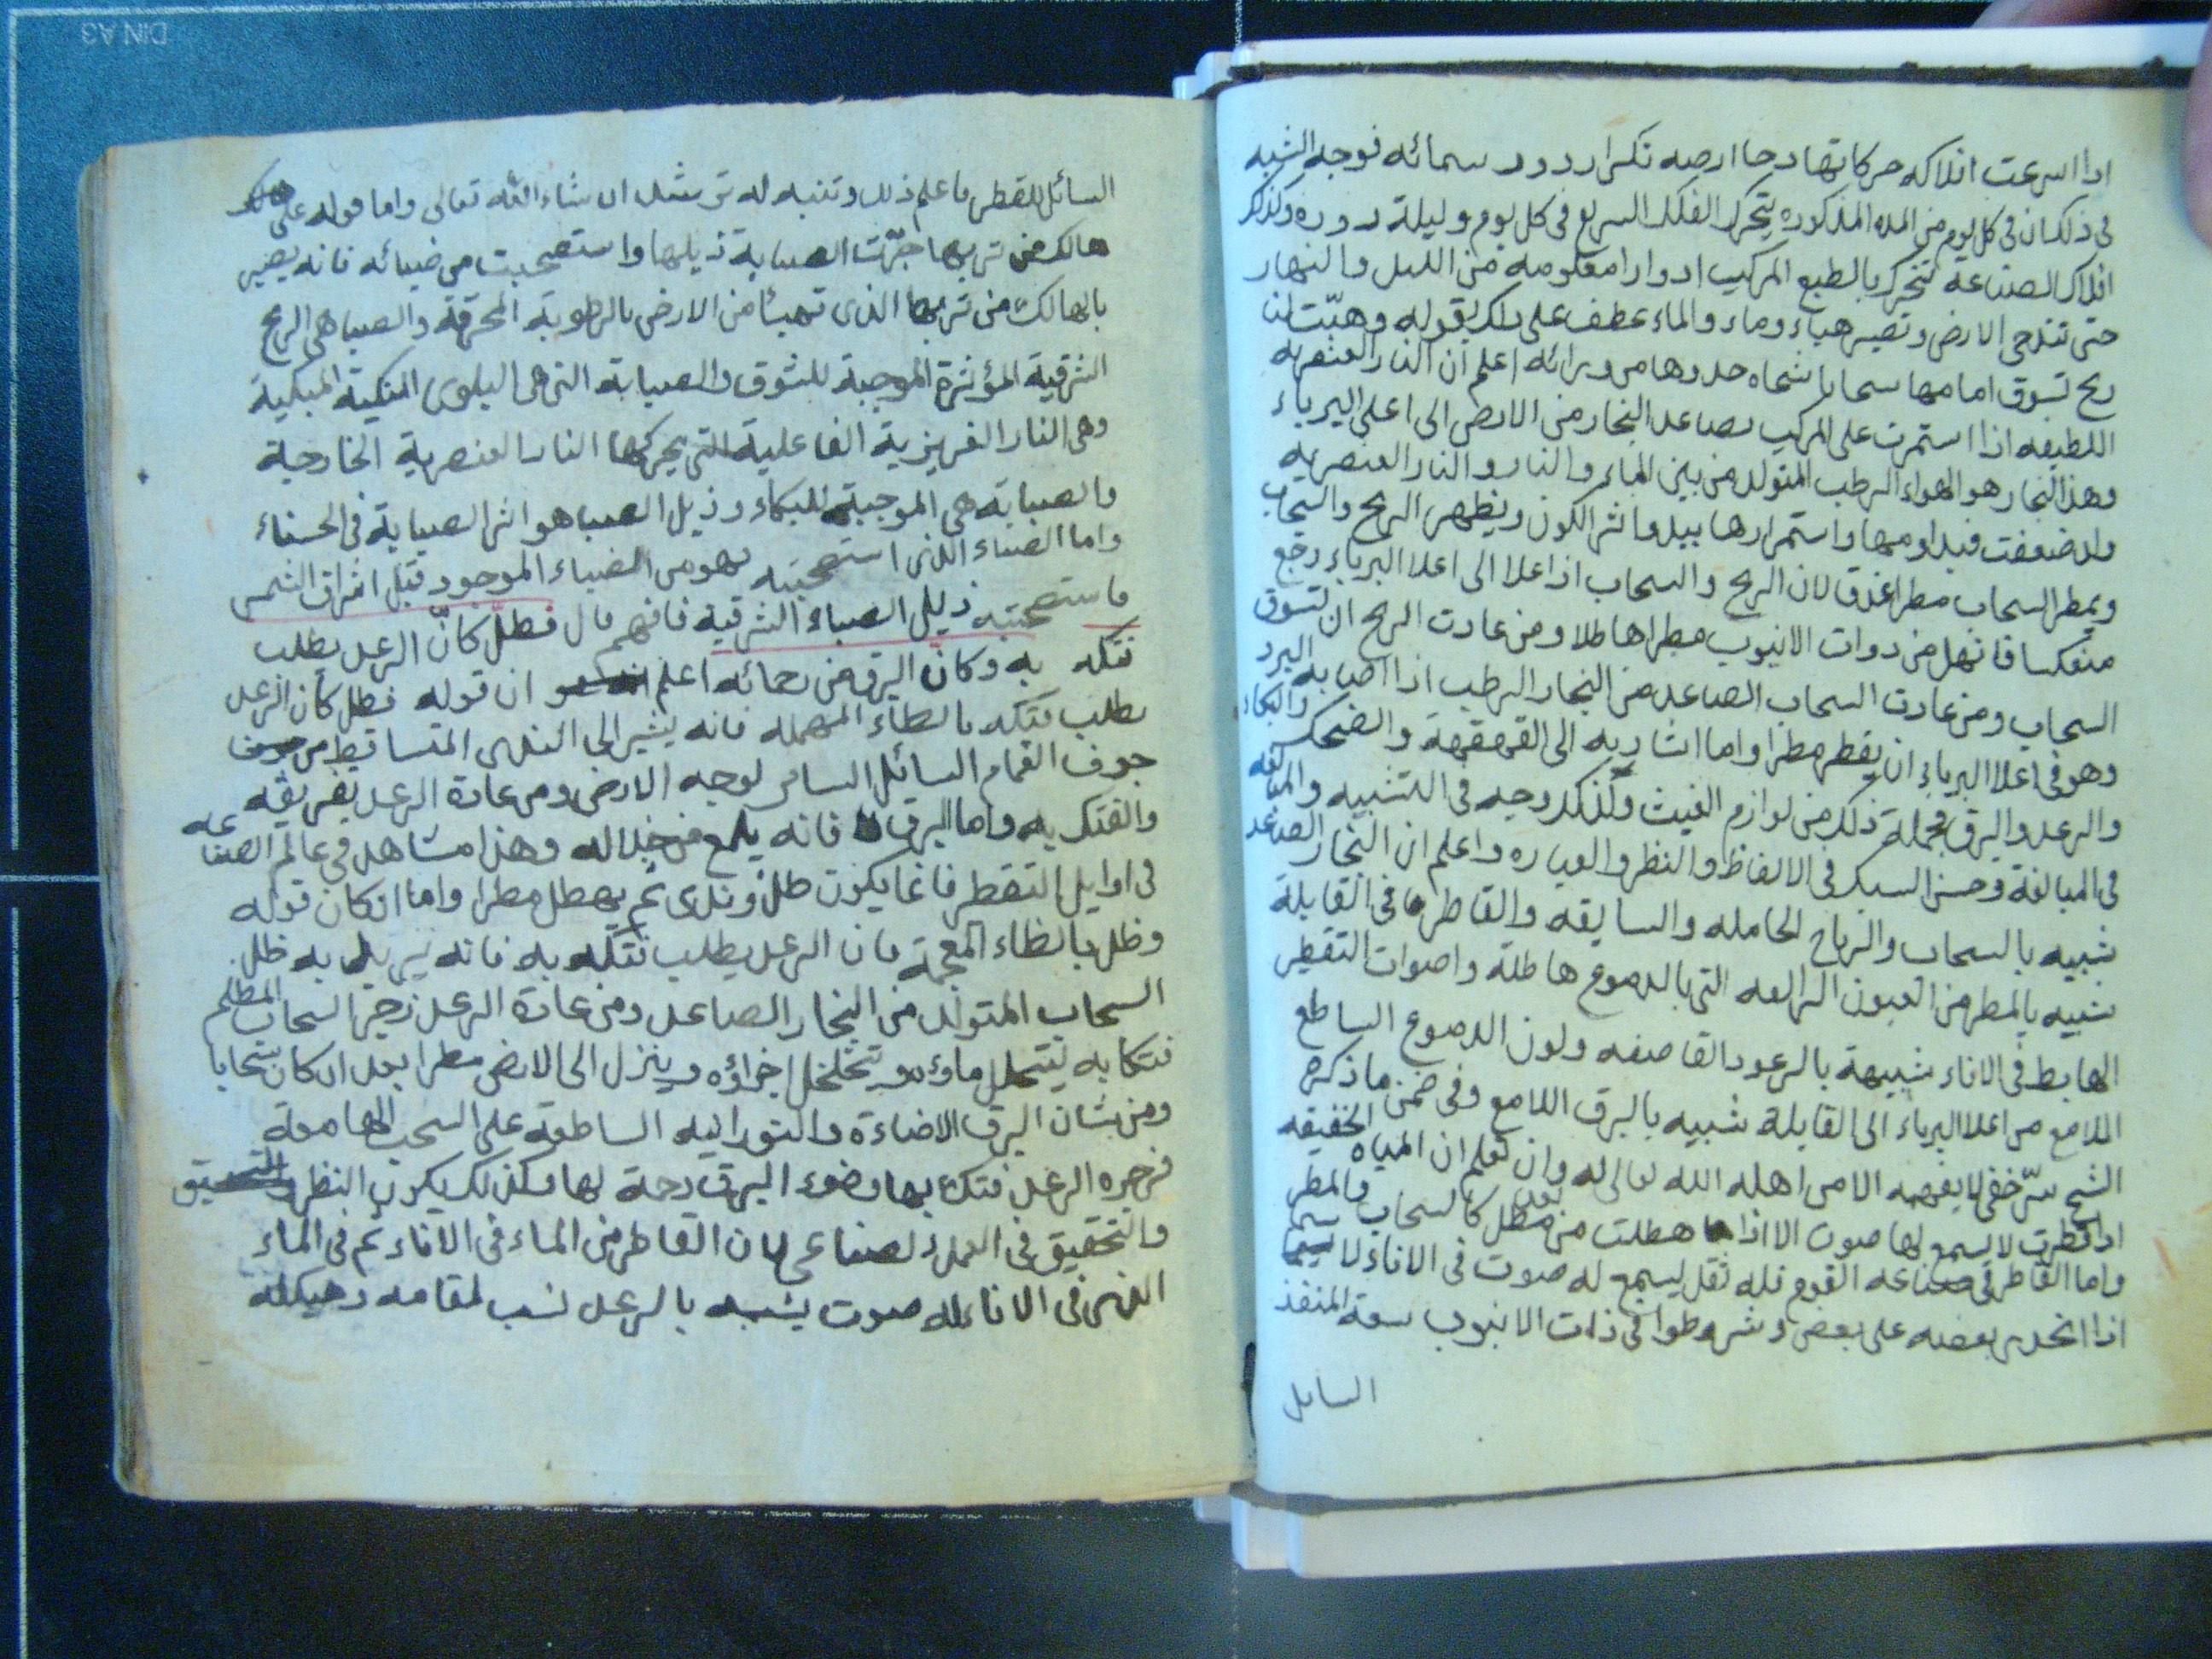 اذا اسرعت افلاكه حركاتها دحا ارضه تكرار دور سمائه فوجه الشبه
فى ذلك ان فى كل يوم من المده المذكوره يتحرك الفلك السريع فى كل يوم وليلة دوره وكذلك
افلاك الصناعة تتحرك بالطبع المركب ادوارا معلومه من الليل والنهار
حتى تندحى الارض وتصير هباء وماء والماء عطف على ذلك بقوله وهبّت لنا
ريح تسوق امامها سحابا شماه حدوها من ورائه اعلم ان النار العنصريه
اللطيفه اذا استمرت على المركب يصاعد البخار من الارض الى اعلى البرباء
وهذا البخار هو الهواء الرطب المتولد من بين الماء والنار والنار العنصريه
وان ضعفت فبداومها واستمرارها يبدو اثر الكون ويظهر الريح والسحاب
ويمطر السحاب مطرا غدق لان الريح والسحاب اذا علا الى اعلا البرباء رجع
منعكسا فانهل من ذوات الانبوب مطرا هاطلا ومن عادت الريح ان تسوق
السحاب ومن عادت السحاب الصاعد من البخار الرطب اذا اصابه البرد
وهو فى اعلا البرباء ان يقطر مطرا واما اشار به الى القهقهة والضحك والبكاء
والرعد والبرق فجملة ذلك من لوازم الغيث وكذلك وجه فى التشبيه والمبالغه
فى المبالغة وحسن السبك فى الالفاظ والنظر والعباره واعلم ان البخار الصاعد
شبيه بالسحاب والرياح الحامله والسايقه والقاطر فى القابلة
شبيه بالمطر من العيون الرابعه التى بالدموع هاطلة واصوات التقطير
الهابط فى الاناء شبيهة بالرعود القاصفه ولون الدموع الساطع
اللامع من اعلا البرباء الى القابلة شبيه بالبرق اللامع وفى ضمن ما ذكره
الشيخ سرّ خفى لا يفهمه الا من اهله الله تعالى له وان تعلم ان المياه الخفيفه
اذا قطرت لا يسمع لها صوت الا اذا هطلت من بعد مطل كالسحاب والمطر
واما القاطر فى صناعه القوم فله ثقل يسمع له صوت فى الاناء لا سيما
اذا انحدر بعضه على بعض وشرطوا فى ذات الانبوب سعة المنفذ
السايل
السائل للقطر فاعلم ذلك وتنبه له ترشد ان شاء الله تعالى واما قوله على هالك
هالك من تربها جرّت الصبابة ذيلها واستصحبت من ضيائه فانه يصير
بالهالك من تربها الذى تهيئا من الارض بالرطوبة المحرقة والصبا هى الريح
الشرقية المؤثرة الموجبة للشوق والصبابة التى هى البلوى المنكية المبكية
وهى النار الغريزية الفاعلية التى يحركها النار العنصرية الخارجية
والصبابة هى الموجبة للبكاء وذيل الصبا هو اثر الصبابة فى الحسناء
واما الضياء الذى استصحبته فهو من الضياء الموجود قبل اشراق الشمس
فاستصحبته ذيل الصباء الشرقية فافهم قال فطلّ كانّ الرعد يطلب
فتكه به وكان البرق من رحمائه اعلم ان قوله فطل كان الرعد
يطلب فتكه بالطاء المهمله فانه يشير الى الندى المتساقط من
جوف الغمام السائل الساتر لوجه الارض ومن عادة الرعد تفريقه
والفتك به واما البرق فانه يلمع من خلاله وهذا مشاهد فى عالم الصناعه
فى اوايل التقطير فانما يكون طلّ وندى ثم يهطل مطرا واما ان كان قوله
وظل بالظاء المعجمة فان الرعد يطلب فتكه به فانه يريد به ظل
السحاب المتولد من البخار الصاعد ومن عادة الرعد زجر السحاب المظلم
فتكا به ليتحلل ماؤه ويتخلخل اجزاؤه وينزل الى الارض مطرا بعد ان كان سحابا
ومن شان البرق الاضاءة والنورانيه الساطعة على السحب الهامعة
فزجره الرعد فتك بها وضوء البرق رحمة لها وكذلك يكون النظر
والتحقيق فى العمل الصناعى لان القاطر من الماء فى الاناء ثم فى الماء
الذى فى الاناء له صوت يشبه بالرعد نسب لمقامه وهيكله